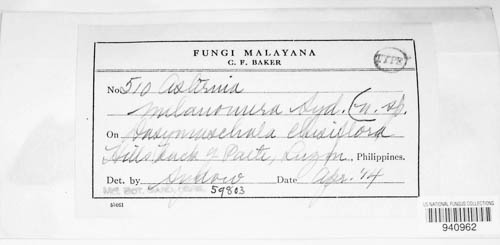 FUNGI MALAYANA
C. F. BAKER
TYPE
No. 510 Asterina
melanomera Syd. (n. sp.
On Dasymaschala clusiflora
Hills back of Paete, Luzon, Philippines.
Det. by Sydow Date Apr. '14
59803
51051
US NATIONAL FUNGUS COLLECTIONS
940962